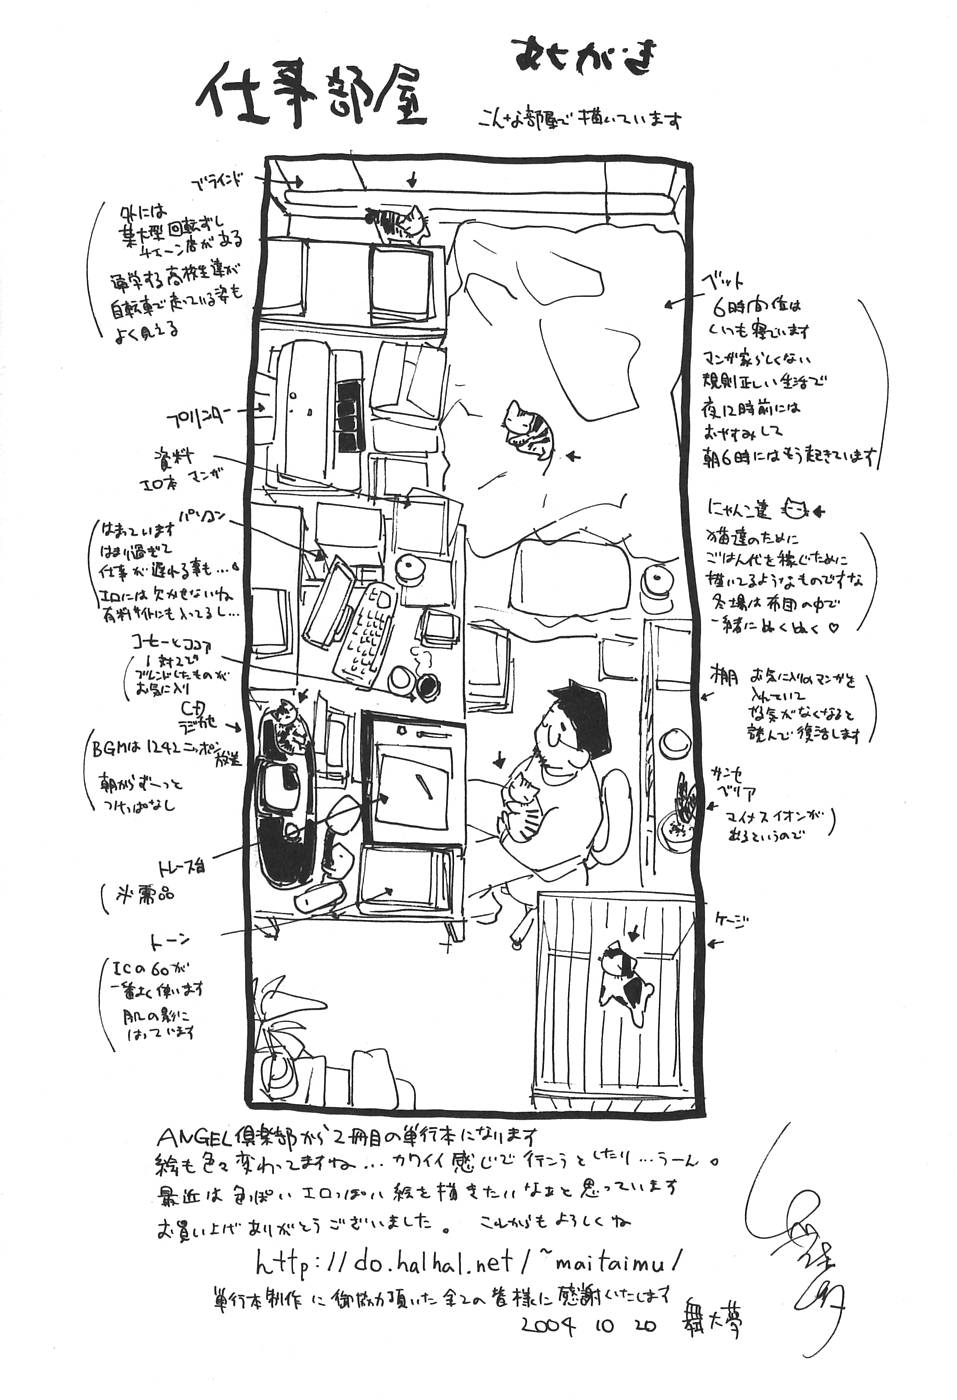 あとがき
仕事部屋
こんな部屋で描いています
ブラインド
外には
某大型回転ずし
チェーン店がある
通学する高校生達が
自転車で走っている姿も
よく見える
プリンター
資料
エロ本 マンガ
パソコン
はまっています
はまり過ぎて
仕事が遅れる事も…
エロには欠かせないね
有料サイトにも入ってるし…
コーヒーとココア
1対2で
ブレンドしたものが
お気に入り
CD
ラジカセ
BGMは1242ニッポン
放送
朝からずーっと
つけっぱなし
トレース台
必需品
トーン
ICの60が
一番よく使います
肌の影に
はっています
ベット
6時間位は
いつも寝ています
マンガ家らしくない
規則正しい生活で
夜12時前には
おやすみして
朝6時にはもう起きています
にゃんこ達
猫達のために
ごはん代を稼ぐために
描いてるようなものですな
冬場は布団の中で
一緒にぬくぬく♡
棚 お気に入りのマンガを
入れていて
やる気がなくなると
読んで復活します
サンセ
ベリア
マイナスイオンが
出るというので
ケージ
ANGEL倶楽部から2冊目の単行本になります
絵も色々変わってますね…カワイイ感じで行こうとしたり…うーん。
最近は色っぽいエロっぽい絵を描きたいなぁと思っています
お買い上げありがとうございました。 これからもよろしくね
http://do.halhal.net/~maitaimu/
単行本制作に御協力頂いた全ての皆様に感謝いたします
2004 10 20 舞大夢